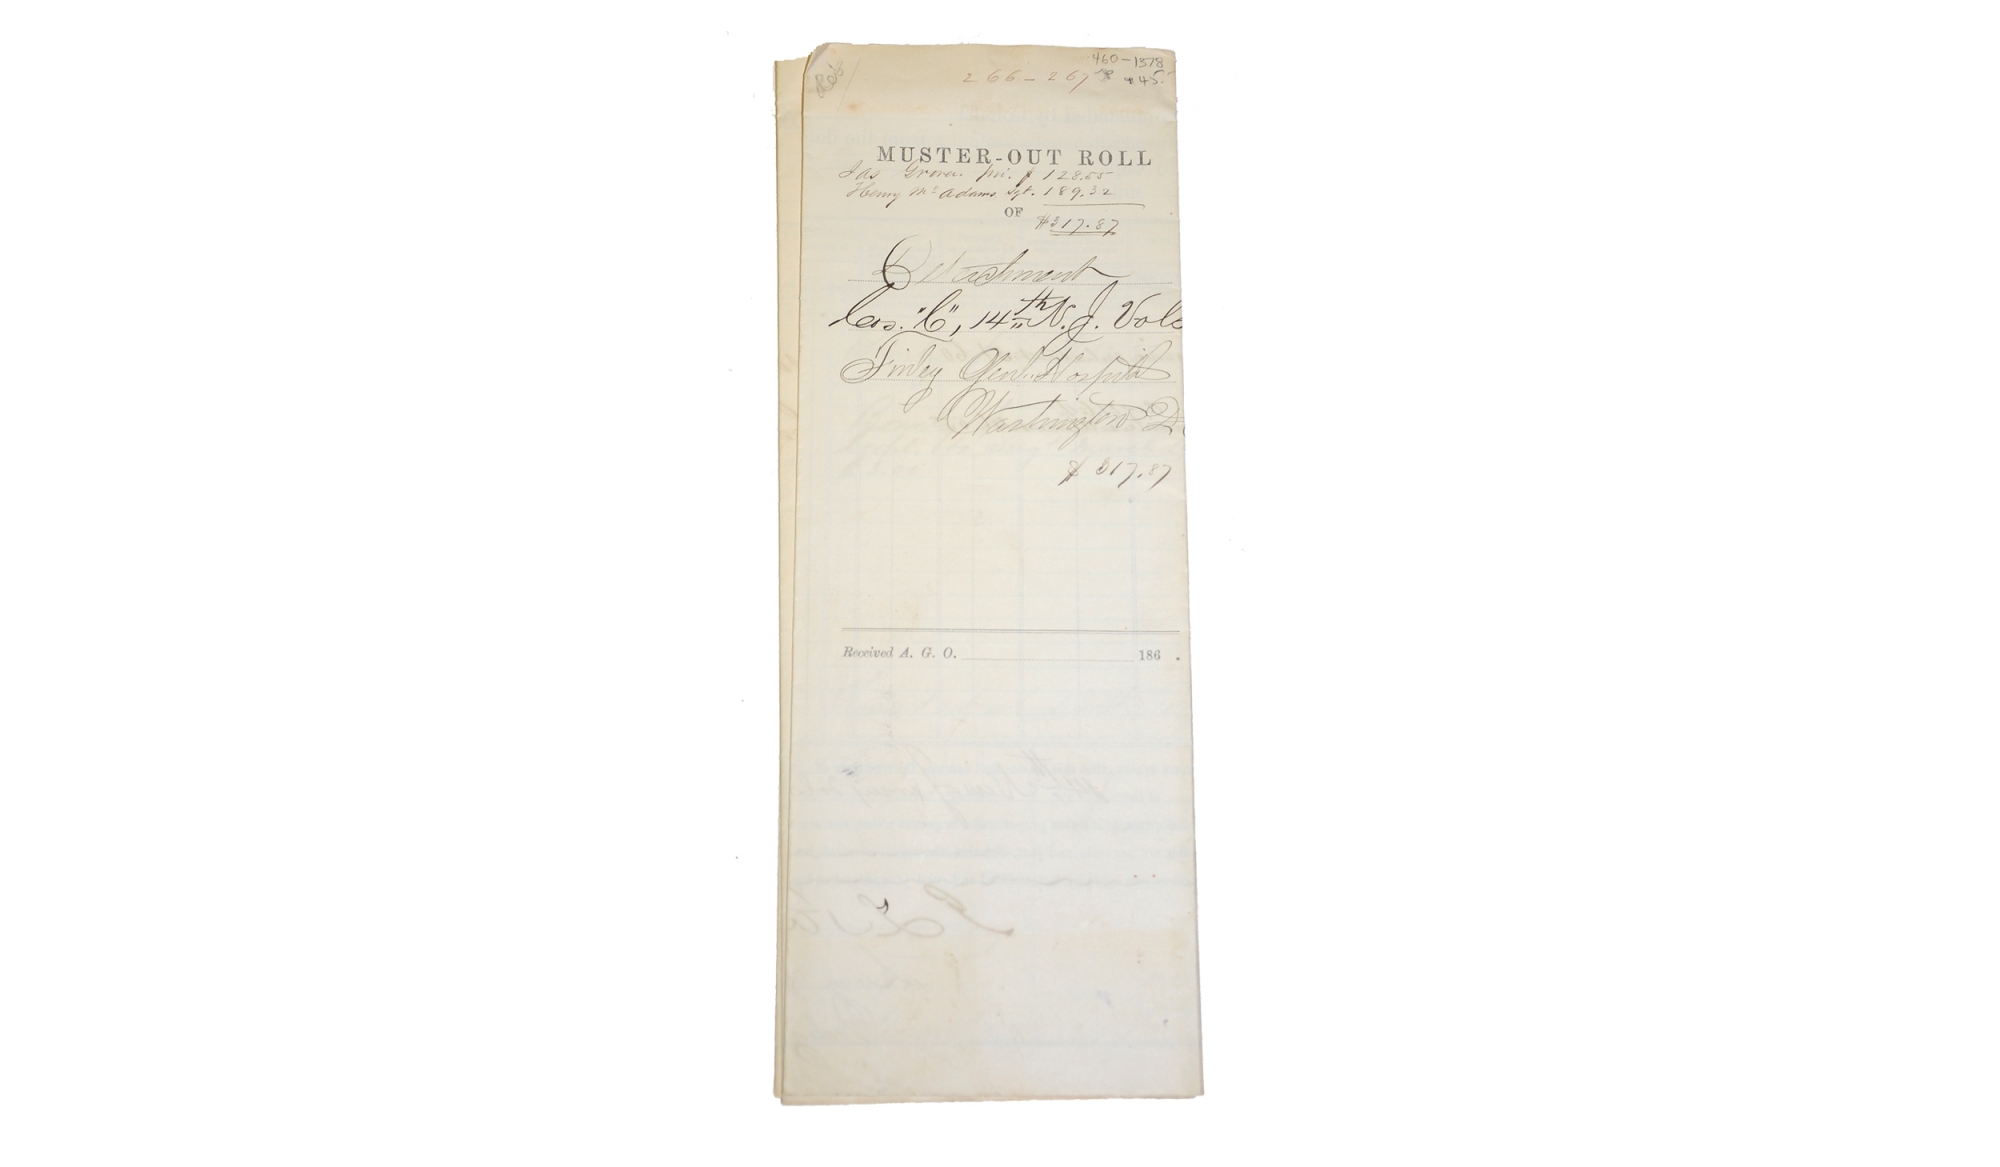 460-1578
266-267 $45.
MUSTER-OUT ROLL
Jas Grover pri. $ 128.55
Henry Mc Adams Sgt. 189.32
OF $317.87
Detachment
Cos. "C", 14th N.J. Vols
Finley Genl. Hospital
Washington D
$ 317.87
Received A. G. O. 186 .